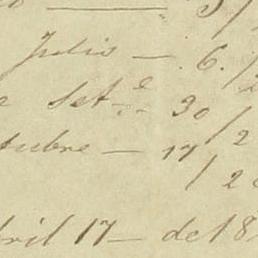 Julio — 6./
Set.e 30/2
tubre — 17/2
bril 17 — de 18